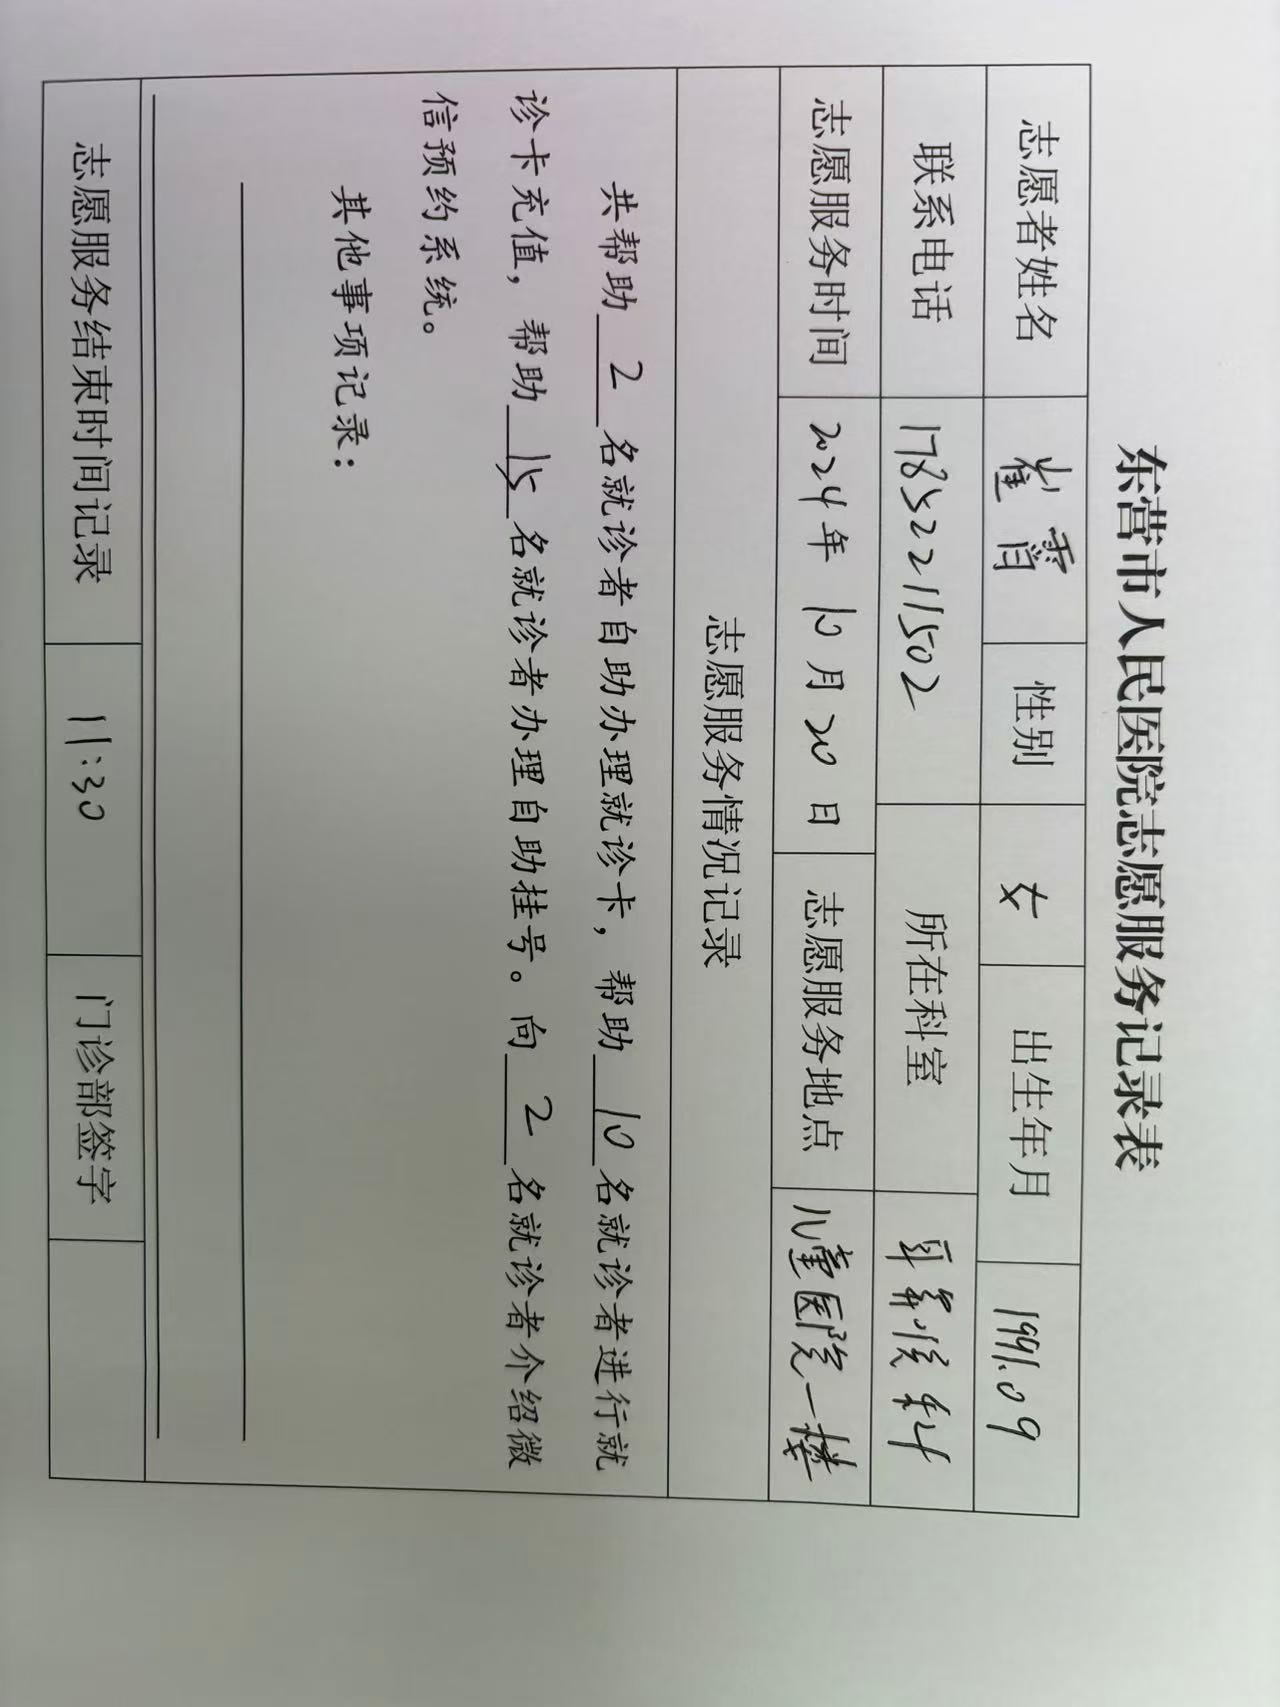 东营市人民医院志愿服务记录表
志愿者姓名 崔霄 性别 女 出生年月 1991.09
联系电话 17852211502 所在科室 耳鼻喉科
志愿服务时间 2024年10月20日 志愿服务地点 儿童医院一楼
志愿服务情况记录
共帮助 2 名就诊者自助办理就诊卡，帮助 10 名就诊者进行就
诊卡充值，帮助 15 名就诊者办理自助挂号。向 2 名就诊者介绍微
信预约系统。
其他事项记录：
志愿服务结束时间记录 11:30 门诊部签字